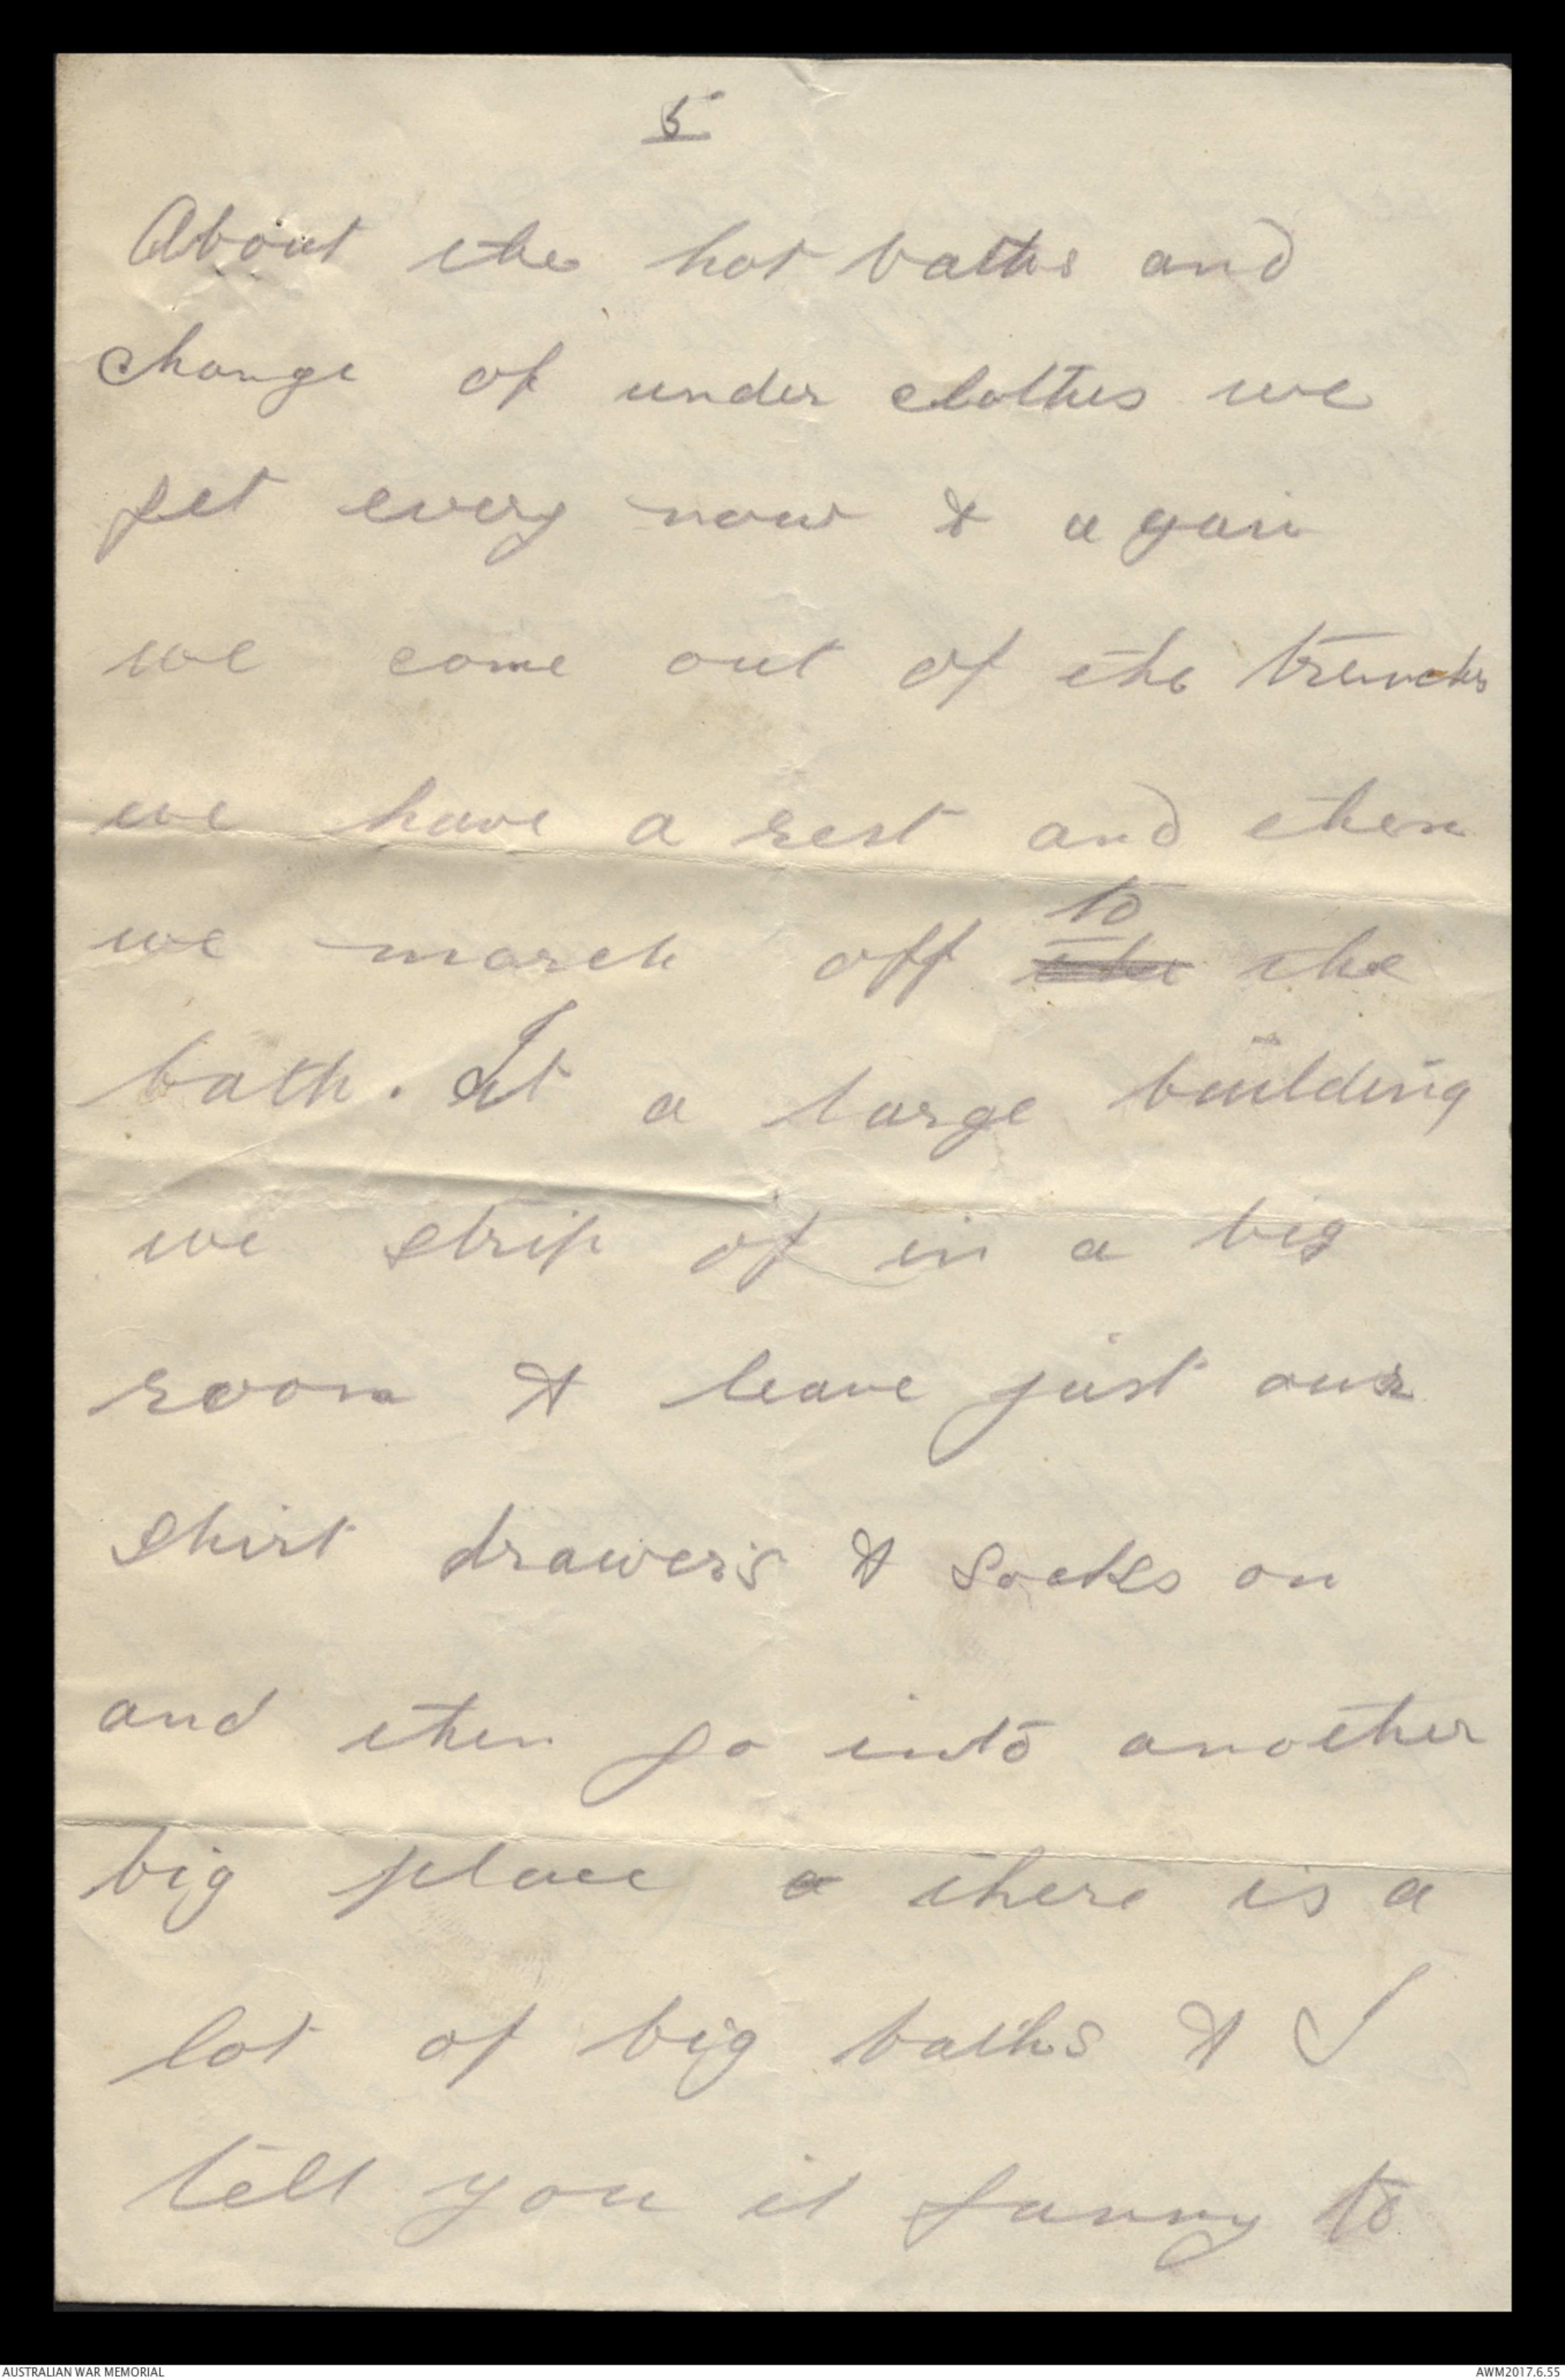 5
About the hot baths and
change of under clothes we
get every now & again
we come out of the trenches
we have a rest and then
we march off to the the
bath. It a large building
we strip of in a big
room & leave just our
shirt drawers & socks on
and then go into another
big place a there is a
lot of big baths & I
tell you it funny to
AUSTRALIAN WAR MEMORIAL
AWM2017.6.55